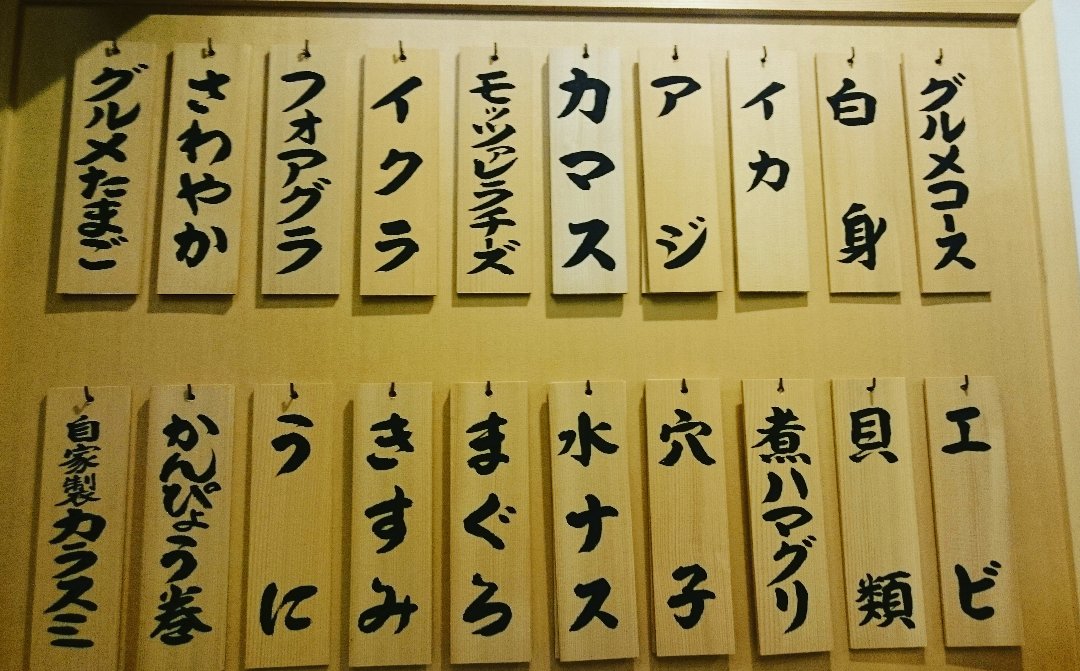 グルメコース
白身
イカ
アジ
カマス
モッツァレラチーズ
イクラ
フォアグラ
さわやか
グルメたまご
エビ
貝類
煮ハマグリ
穴子
水ナス
まぐろ
きすみ
うに
かんぴょう巻
自家製カラスミ